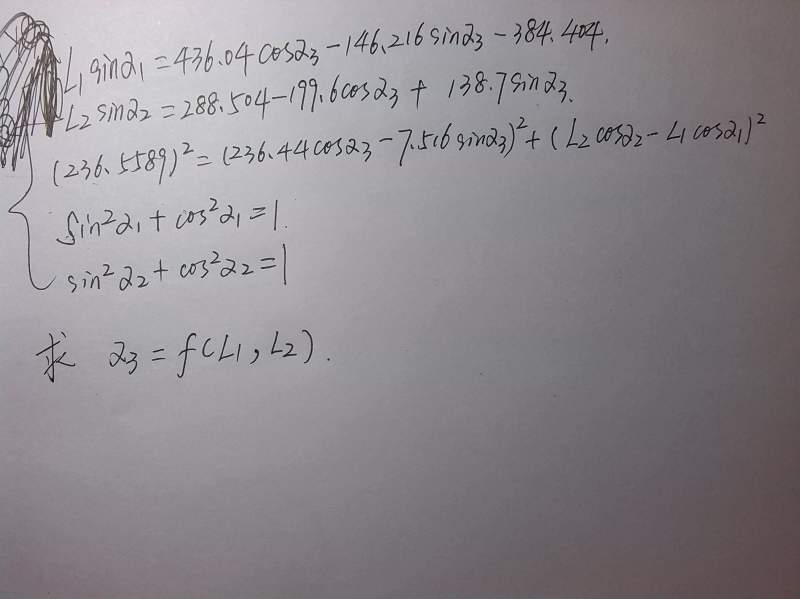 L₁sinα₁=436.04cosα₃-146.216sinα₃-384.404.
L₂sinα₂=288.504-199.6cosα₃+138.7sinα₃.
(236.5589)²=(236.44cosα₃-7.516sinα₃)²+(L₂cosα₂-L₁cosα₁)²
sin²α₁+cos²α₁=1.
sin²α₂+cos²α₂=1
求 α₃=f(L₁,L₂).